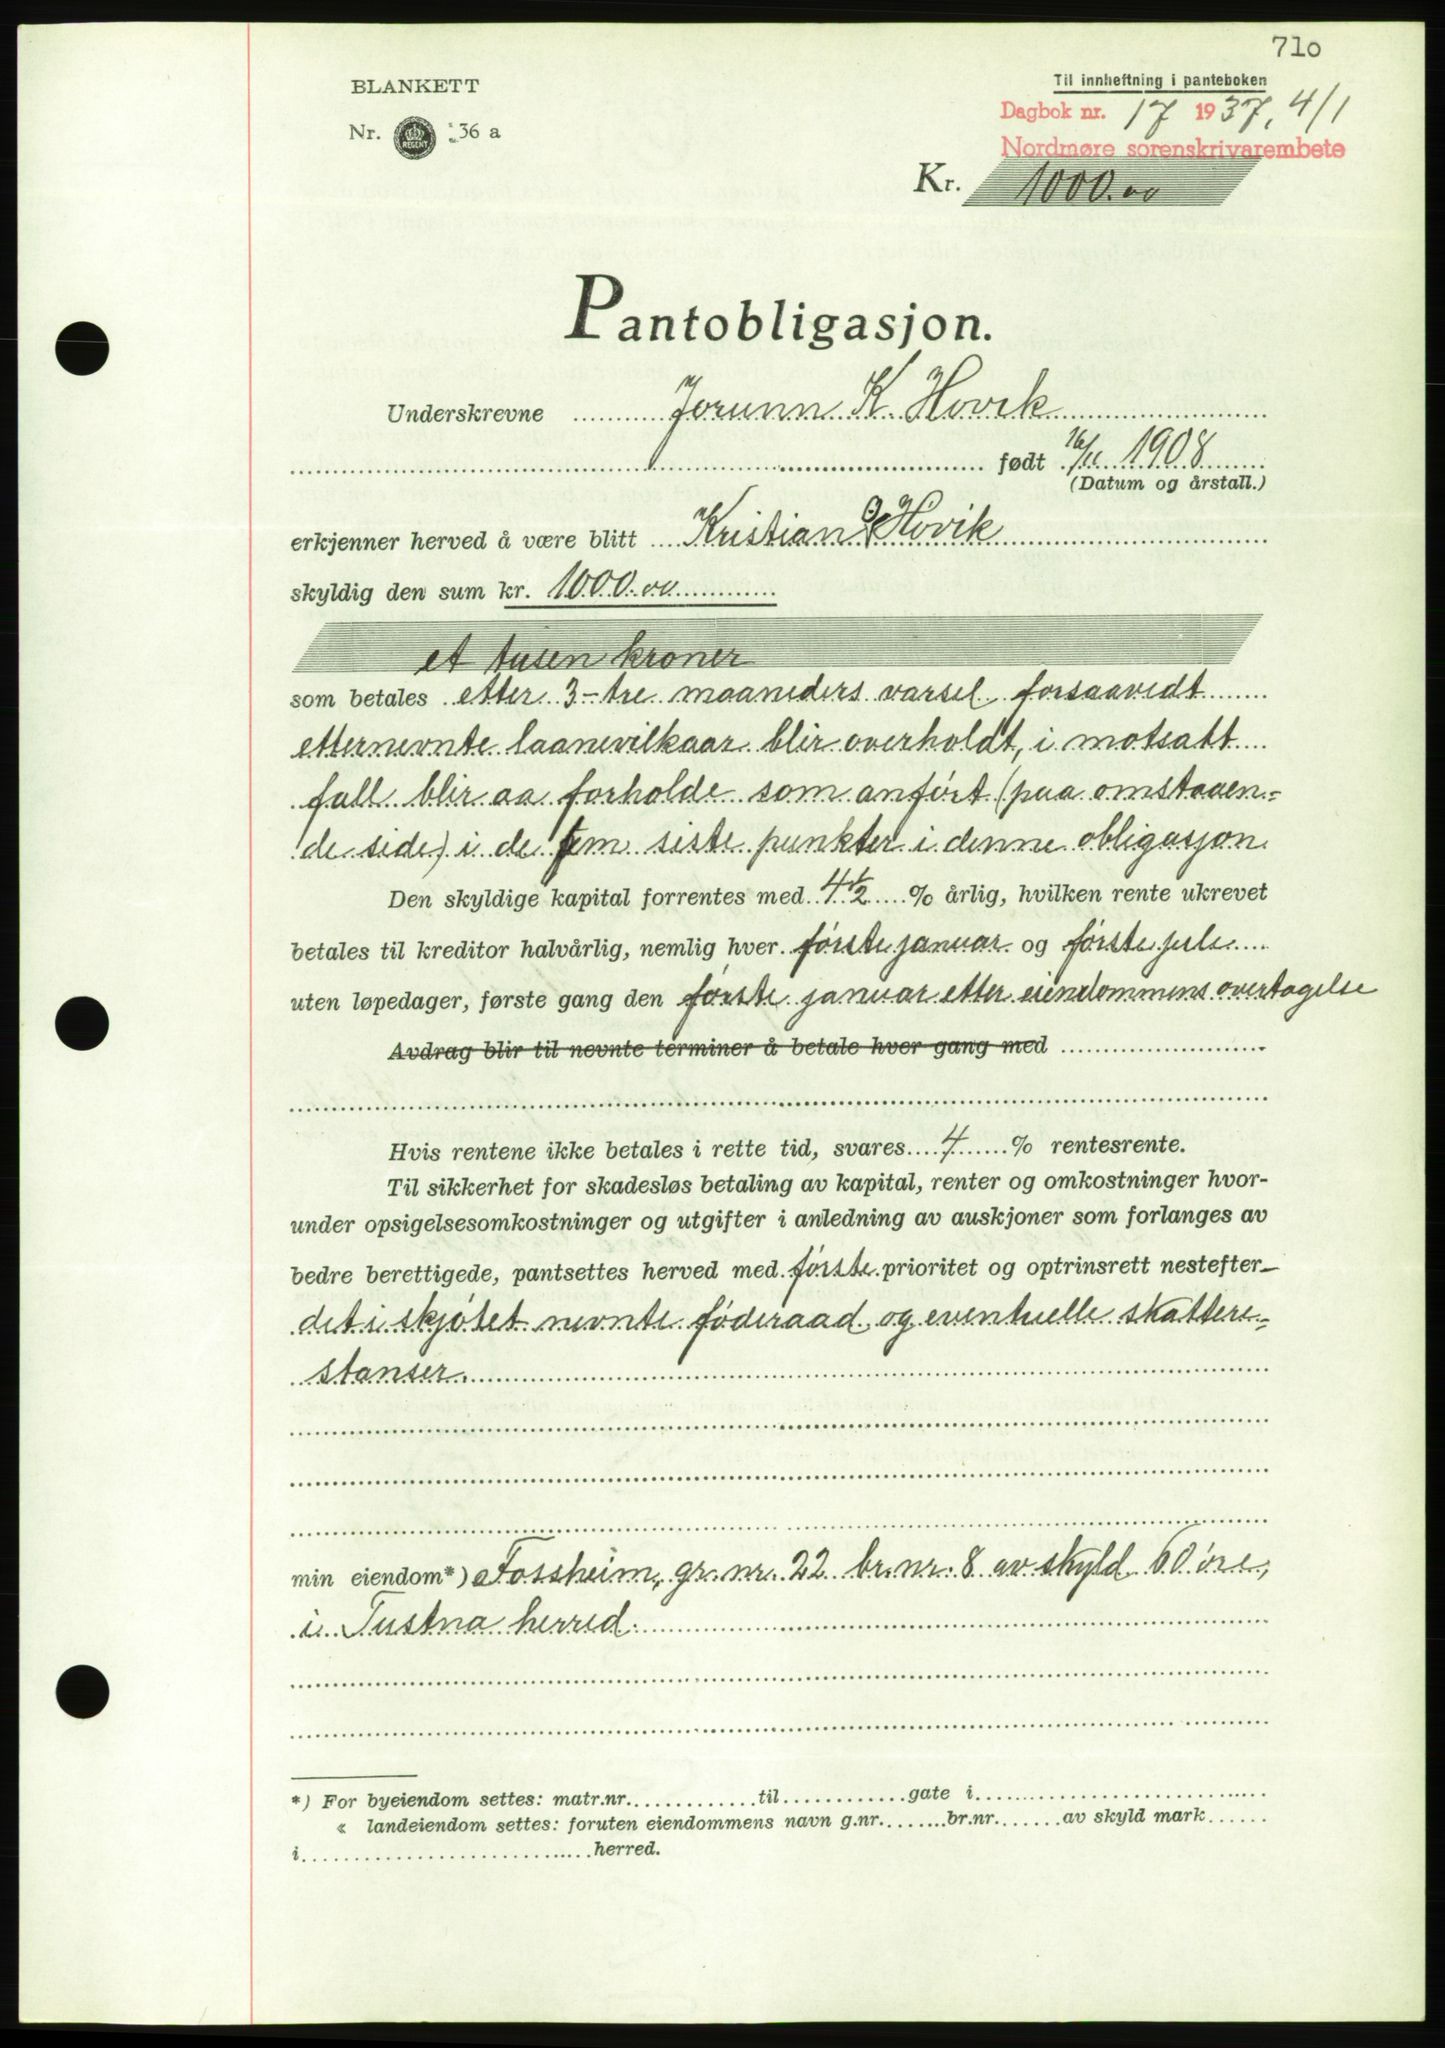 710
BLANKETT
Til innheftning i panteboken
Nr. REGENT 36 a
Dagbok nr. 17 1937, 4/1
Nordmøre sorenskrivarembete
Kr. 1000.00
Pantobligasjon.
Underskrevne Jorunn K. Hovik
født 16/11 1908
(Datum og årstall.)
erkjenner herved å være blitt Kristian O Hovik
skyldig den sum kr. 1000.00
et tusen kroner
som betales etter 3-tre maaneders varsel forsaavidt
etternevnte laanevilkaar blir overholdt, i motsatt
fall blir aa forholde som anført (paa omstaaen-
de side) i de fem siste punkter i denne obligasjon.
Den skyldige kapital forrentes med 4 1/2 % årlig, hvilken rente ukrevet
betales til kreditor halvårlig, nemlig hver første januar og første jule
uten løpedager, første gang den første januar etter eiendommens overtagelse
Avdrag blir til nevnte terminer å betale hver gang med
Hvis rentene ikke betales i rette tid, svares 4 % rentesrente.
Til sikkerhet for skadesløs betaling av kapital, renter og omkostninger hvor-
under opsigelsesomkostninger og utgifter i anledning av auskjoner som forlanges av
bedre berettigede, pantsettes herved med første prioritet og optrinsrett nestefter
det i skjøtet nevnte føderaad og eventuelle skattere-
stanser.
min eiendom*) Fossheim, gr. nr. 22 br. nr. 8 av skyld 60 øre,
i Tustna herred.
*) For byeiendom settes: matr.nr. til gate i
« landeiendom settes: foruten eiendommens navn g.nr. br.nr. av skyld mark
i herred.